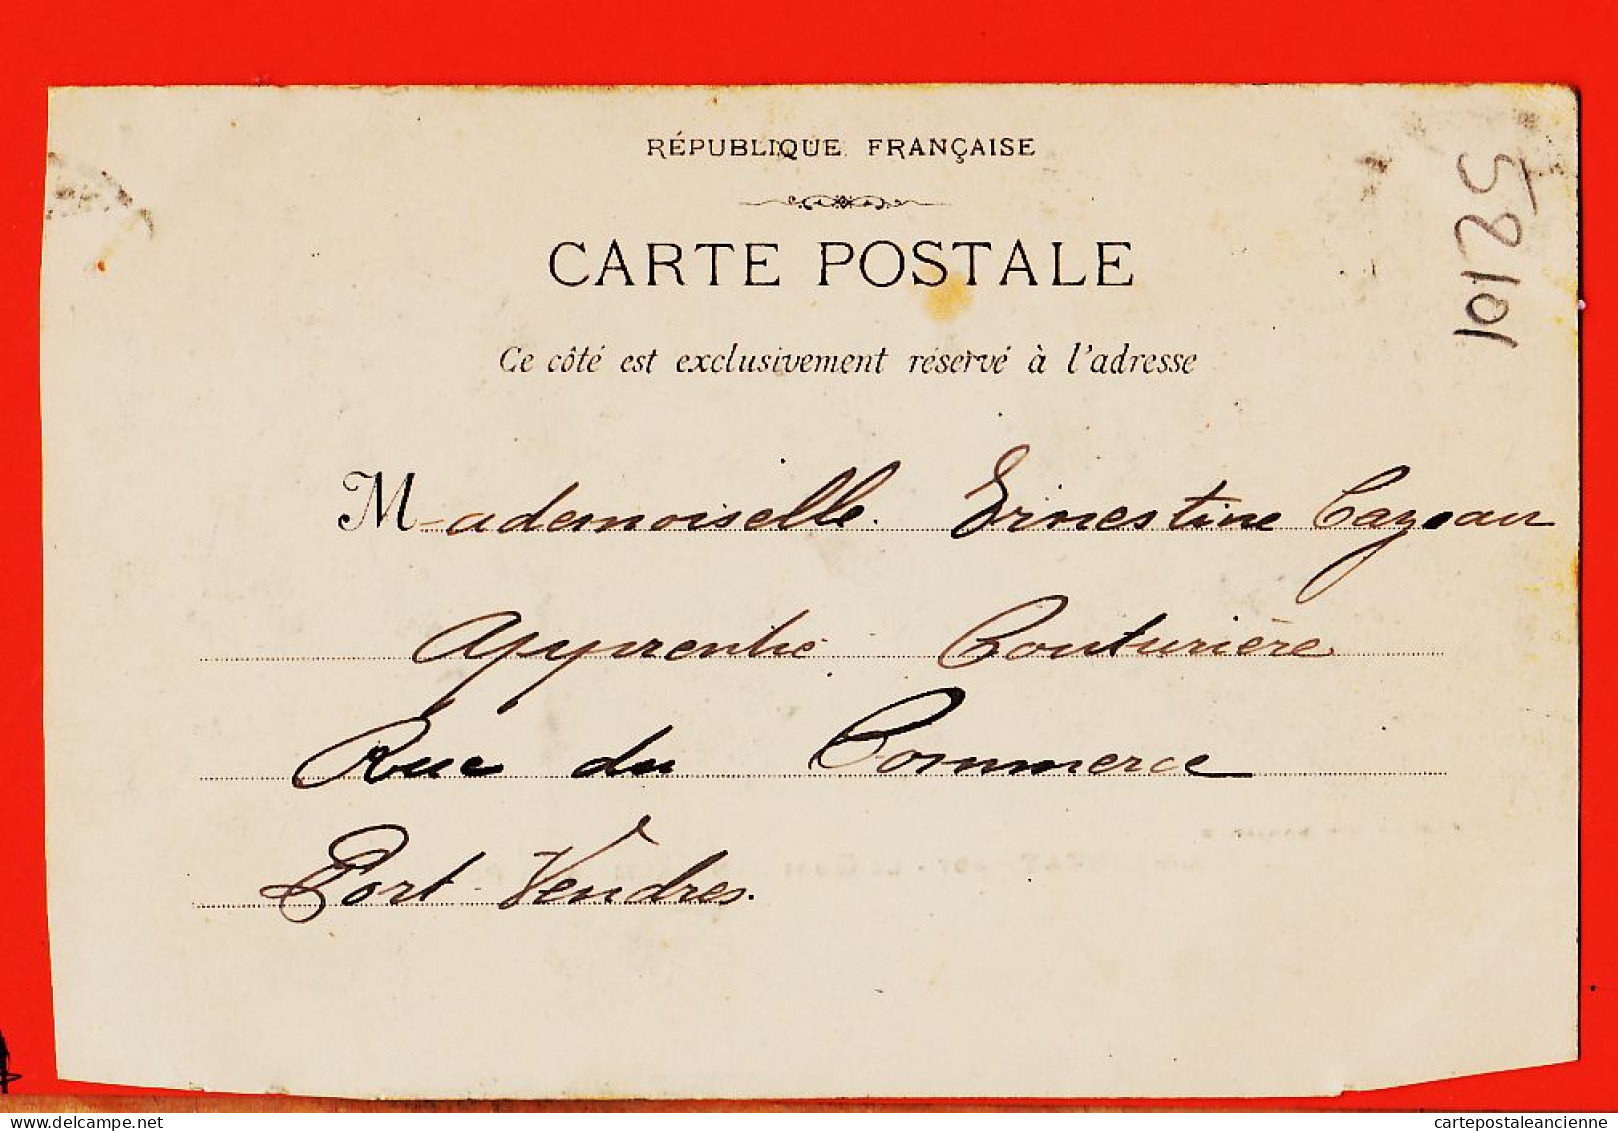 RÉPUBLIQUE FRANÇAISE
CARTE POSTALE
Ce côté est exclusivement réservé à l'adresse
Mademoiselle. Ernestine Cazeau
Apprentie Couturière
Rue du Commerce
Port-Vendres.
cartepostaleancienne